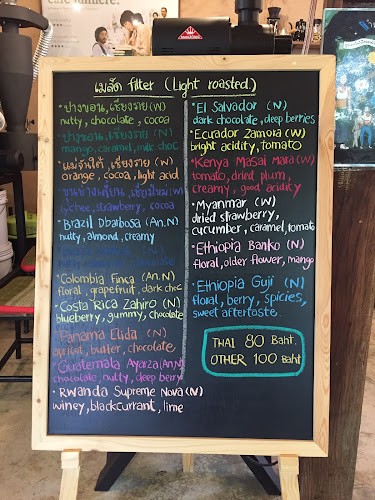 เมล็ด filter (Light roasted.)
• ปางขอน, เชียงราย (W)
nutty, chocolate, cocoa
เชียงราย (N)
mango, caramel, milk choc
• แม่จันใต้, เชียงราย (W)
orange, cocoa, light acid
lychee, strawberry, cocoa
• Brazil Dbarbosa (An.N)
nutty, almond, creamy
• Colombia Finca (An.N)
floral, grapefruit, dark choc
• Costa Rica Zahiro (N)
blueberry, gummy, chocolate
• Panama Elida (N)
apricot, butter, chocolate
• Guatemala Ayarza (An.N)
chocolate, nutty, deep berry
• Rwanda Supreme Nova (N)
winey, blackcurrant, lime
• El Salvador (N)
dark chocolate, deep berries
• Ecurador Zamora (W)
bright acidity, tomato
• Kenya Masai Mara (W)
tomato, dried plum,
creamy, good acidity
• Myanmar (W)
dried strawberry,
cucumber, caramel, tomato
• Ethiopia Banko (N)
floral, older flower, mango
• Ethiopia Guji (N)
floral, berry, spicies,
sweet aftertaste.
THAI 80 Baht.
OTHER 100 Baht